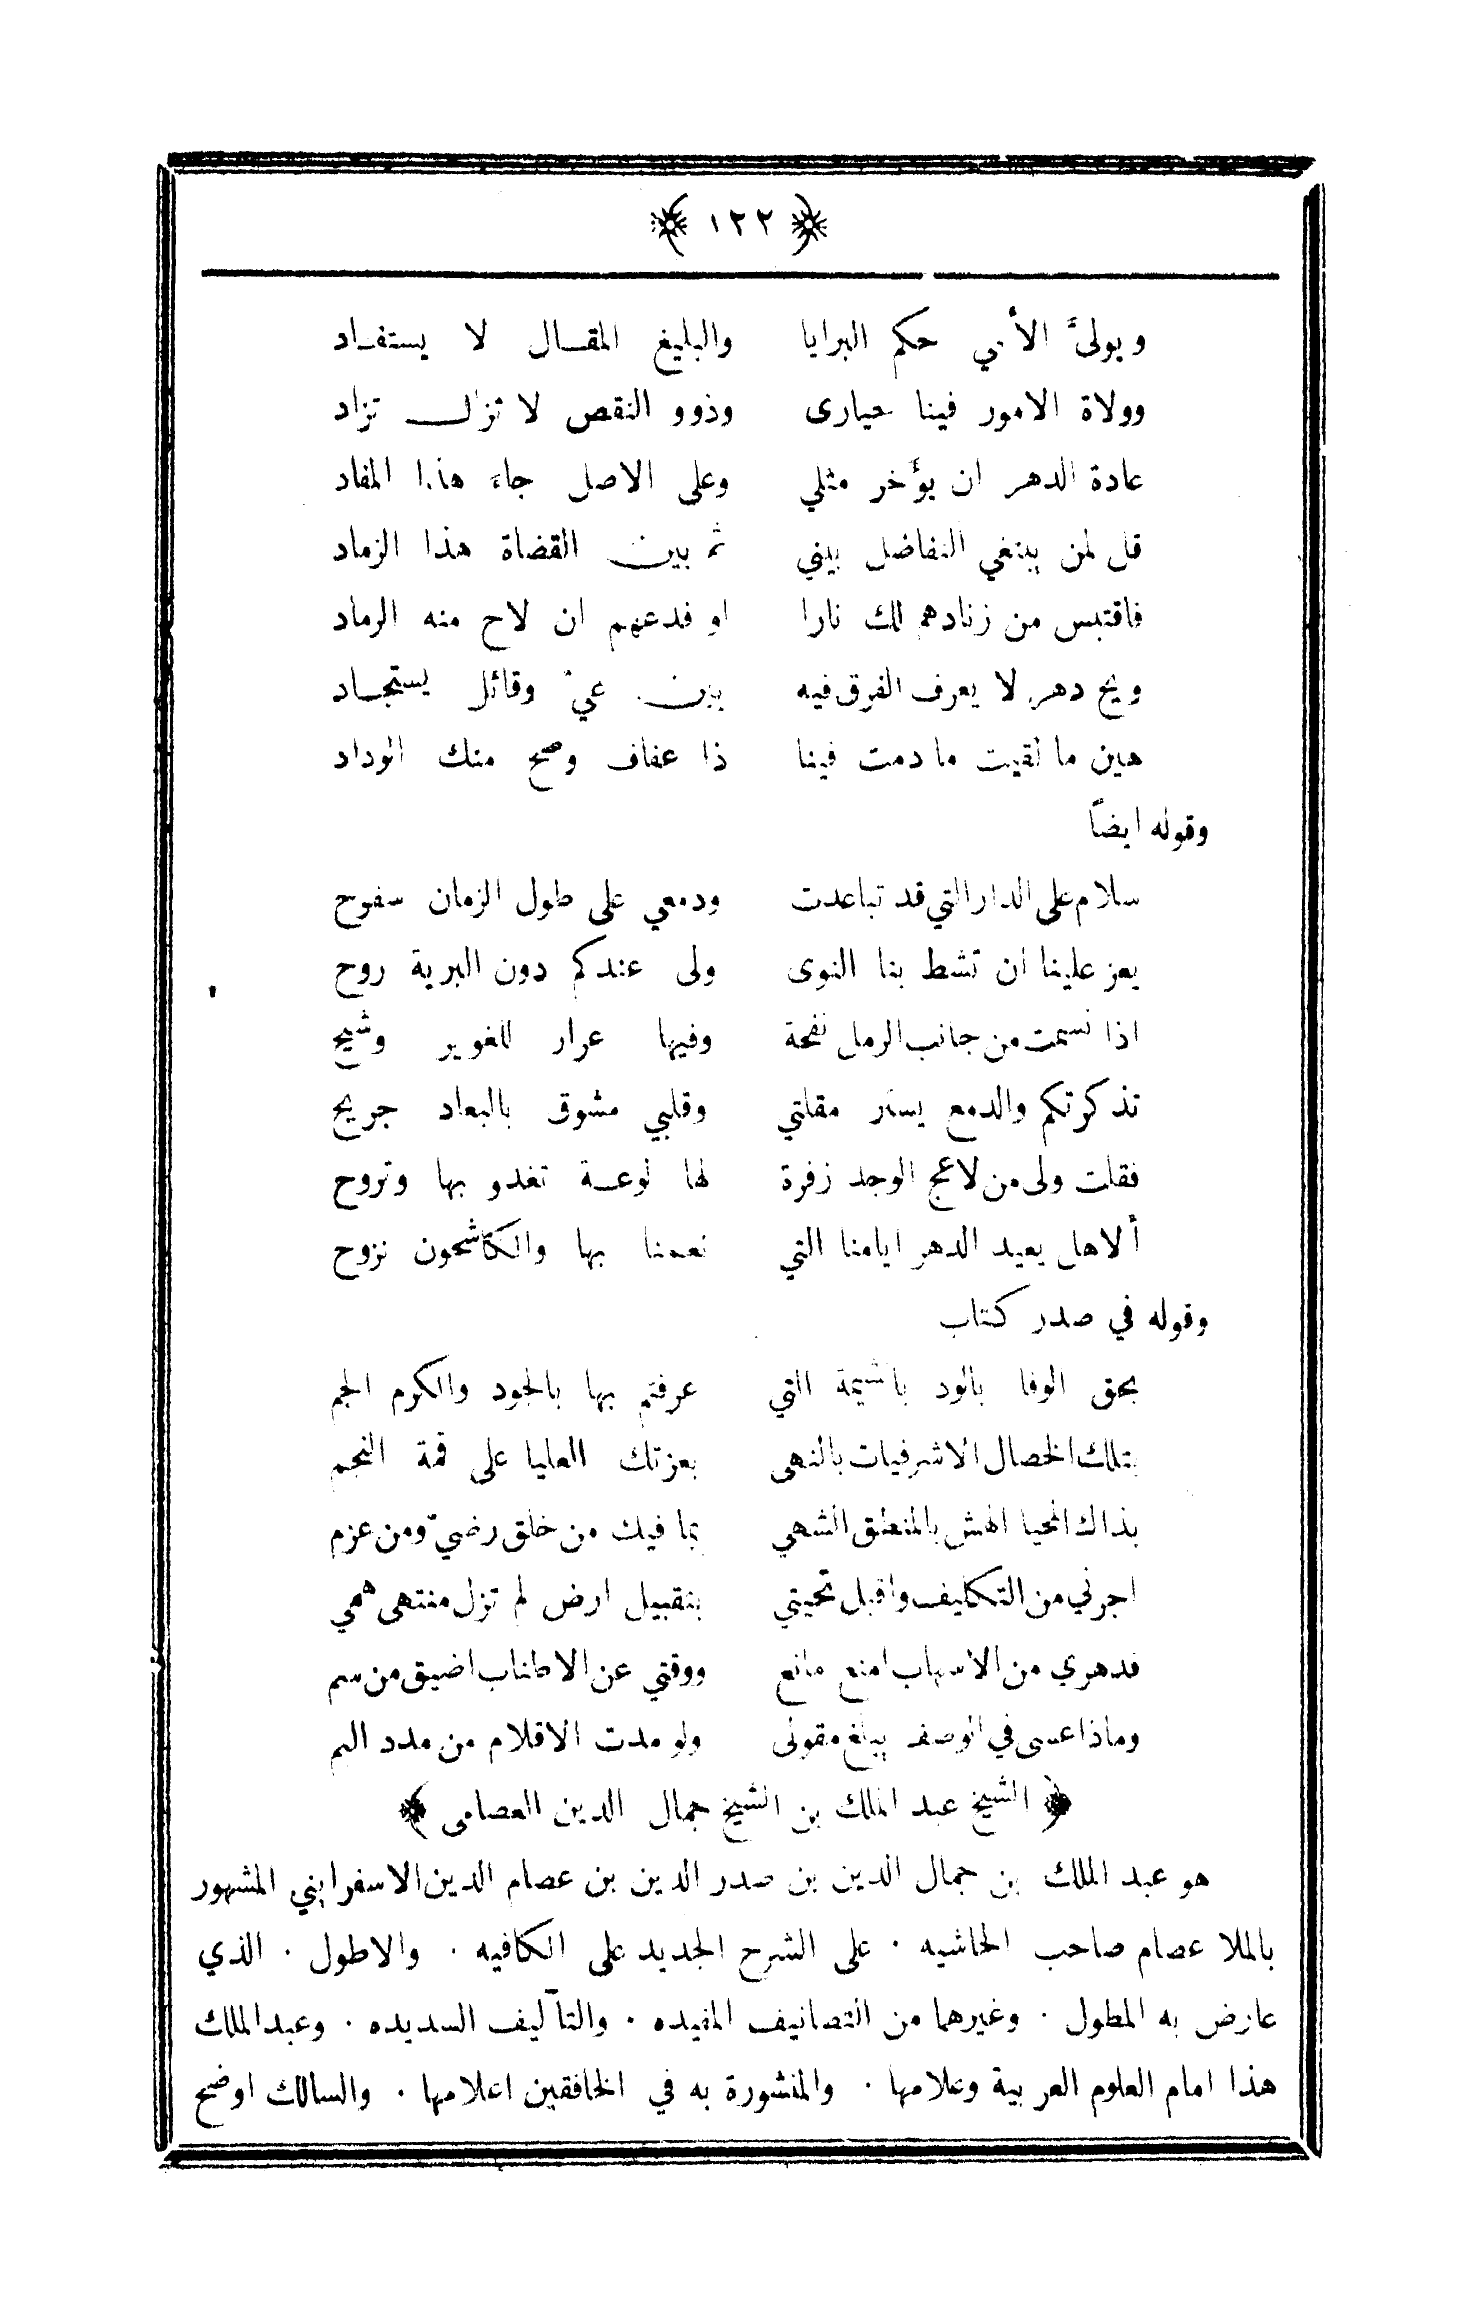 ﴿ ١٢٢ ﴾
ويولىَّ الأبي حكم البرايا والبليغ المقال لا يستفاد
وولاة الامور فينا حيارى وذوو النقص لا تزال تزاد
عادة الدهر ان يؤَخر مثلي وعلى الاصل جاء هذا المفاد
قل لمن يبتغي التفاضل بيني ثم بين القضاة هذا الزماد
فاقتبس من زنادهم لك نارا او فدعهم ان لاح منه الرماد
ويح دهر لا يعرف الفرق فيه بين عيّ وقائل يستجاد
هين ما لقيت ما دمت فينا ذا عفاف وصح منك الوداد
وقوله ايضاً
سلام على الدار التي قد تباعدت ودمعي على طول الزمان سفوح
يعز علينا ان تشط بنا النوى ولى عندكم دون البرية روح
اذا نسمت من جانب الرمل نفحة وفيها عرار للغوير وشيح
تذكرتكم والدمع يستر مقلتي وقلبي مشوق بالبعاد جريح
فقلت ولى من لاعج الوجد زفرة لها لوعة تغدو بها وتروح
ألا هل يعيد الدهر ايامنا التي نعمنا بها والكاشحون نزوح
وقوله في صدر كتاب
بحق الوفا بالود باشيمة التي عرفتم بها بالجود والكرم الجم
بتلك الخصال الاشرفيات بالنهى بعزتك العليا على قمة النجم
بذاك المحيا الهش بالمنطق الشهي بما فيك من خلق رضيّ ومن عزم
اجرني من التكليف واقبل تحيتي بتقبيل ارض لم تزل منتهى همي
فدهري من الاسهاب امنع مانع ووقتي عن الاطناب اضيق من سم
وماذا عسى في الوصف يبلغ مقولى ولو مدت الاقلام من مدد اليم
﴿ الشيخ عبد الملك بن الشيخ جمال الدين العصامى ﴾
هو عبد الملك بن جمال الدين بن صدر الدين بن عصام الدين الاسفرايني المشهور
بالملا عصام صاحب الحاشيه ٠ على الشرح الجديد على الكافيه ٠ والاطول ٠ الذي
عارض به المطول ٠ وغيرهما من التصانيف المفيده ٠ والتآليف السديده ٠ وعبد الملك
هذا امام العلوم العربية وعلامها ٠ والمنشورة به في الخافقين اعلامها ٠ والسالك اوضح